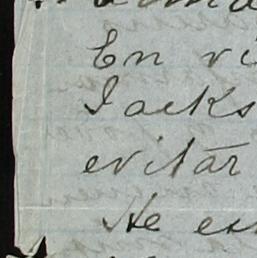 En vi
Jacks
evitar
He es